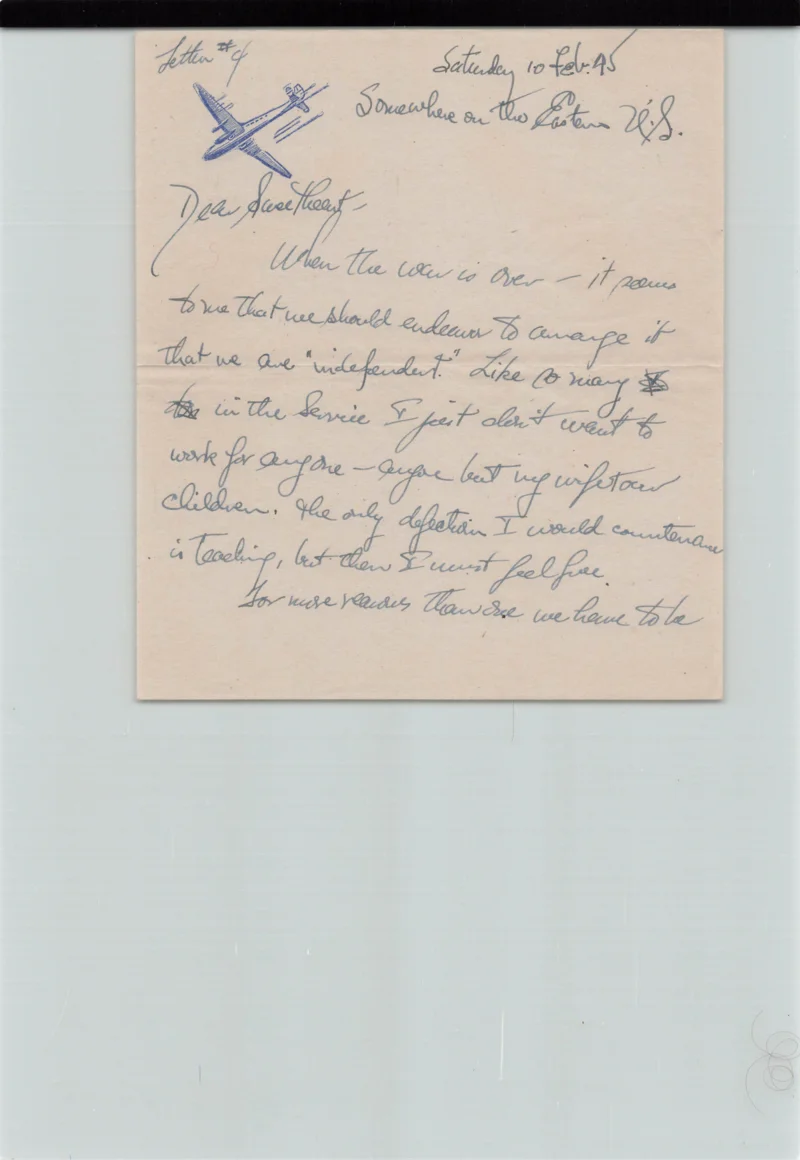 Letter #4
Saturday 10 Feb. 45
Somewhere on the Eastern U.S.
Dear Sweetheart –
When the war is over – it seems
to me that we should endeavor to arrange it
that we are "independent." Like so many
in the Service I just don't want to
work for anyone – anyone but my wife + our
children. The only defection I would countenance
is teaching, but then I must feel free.
For more reasons than one we have to be